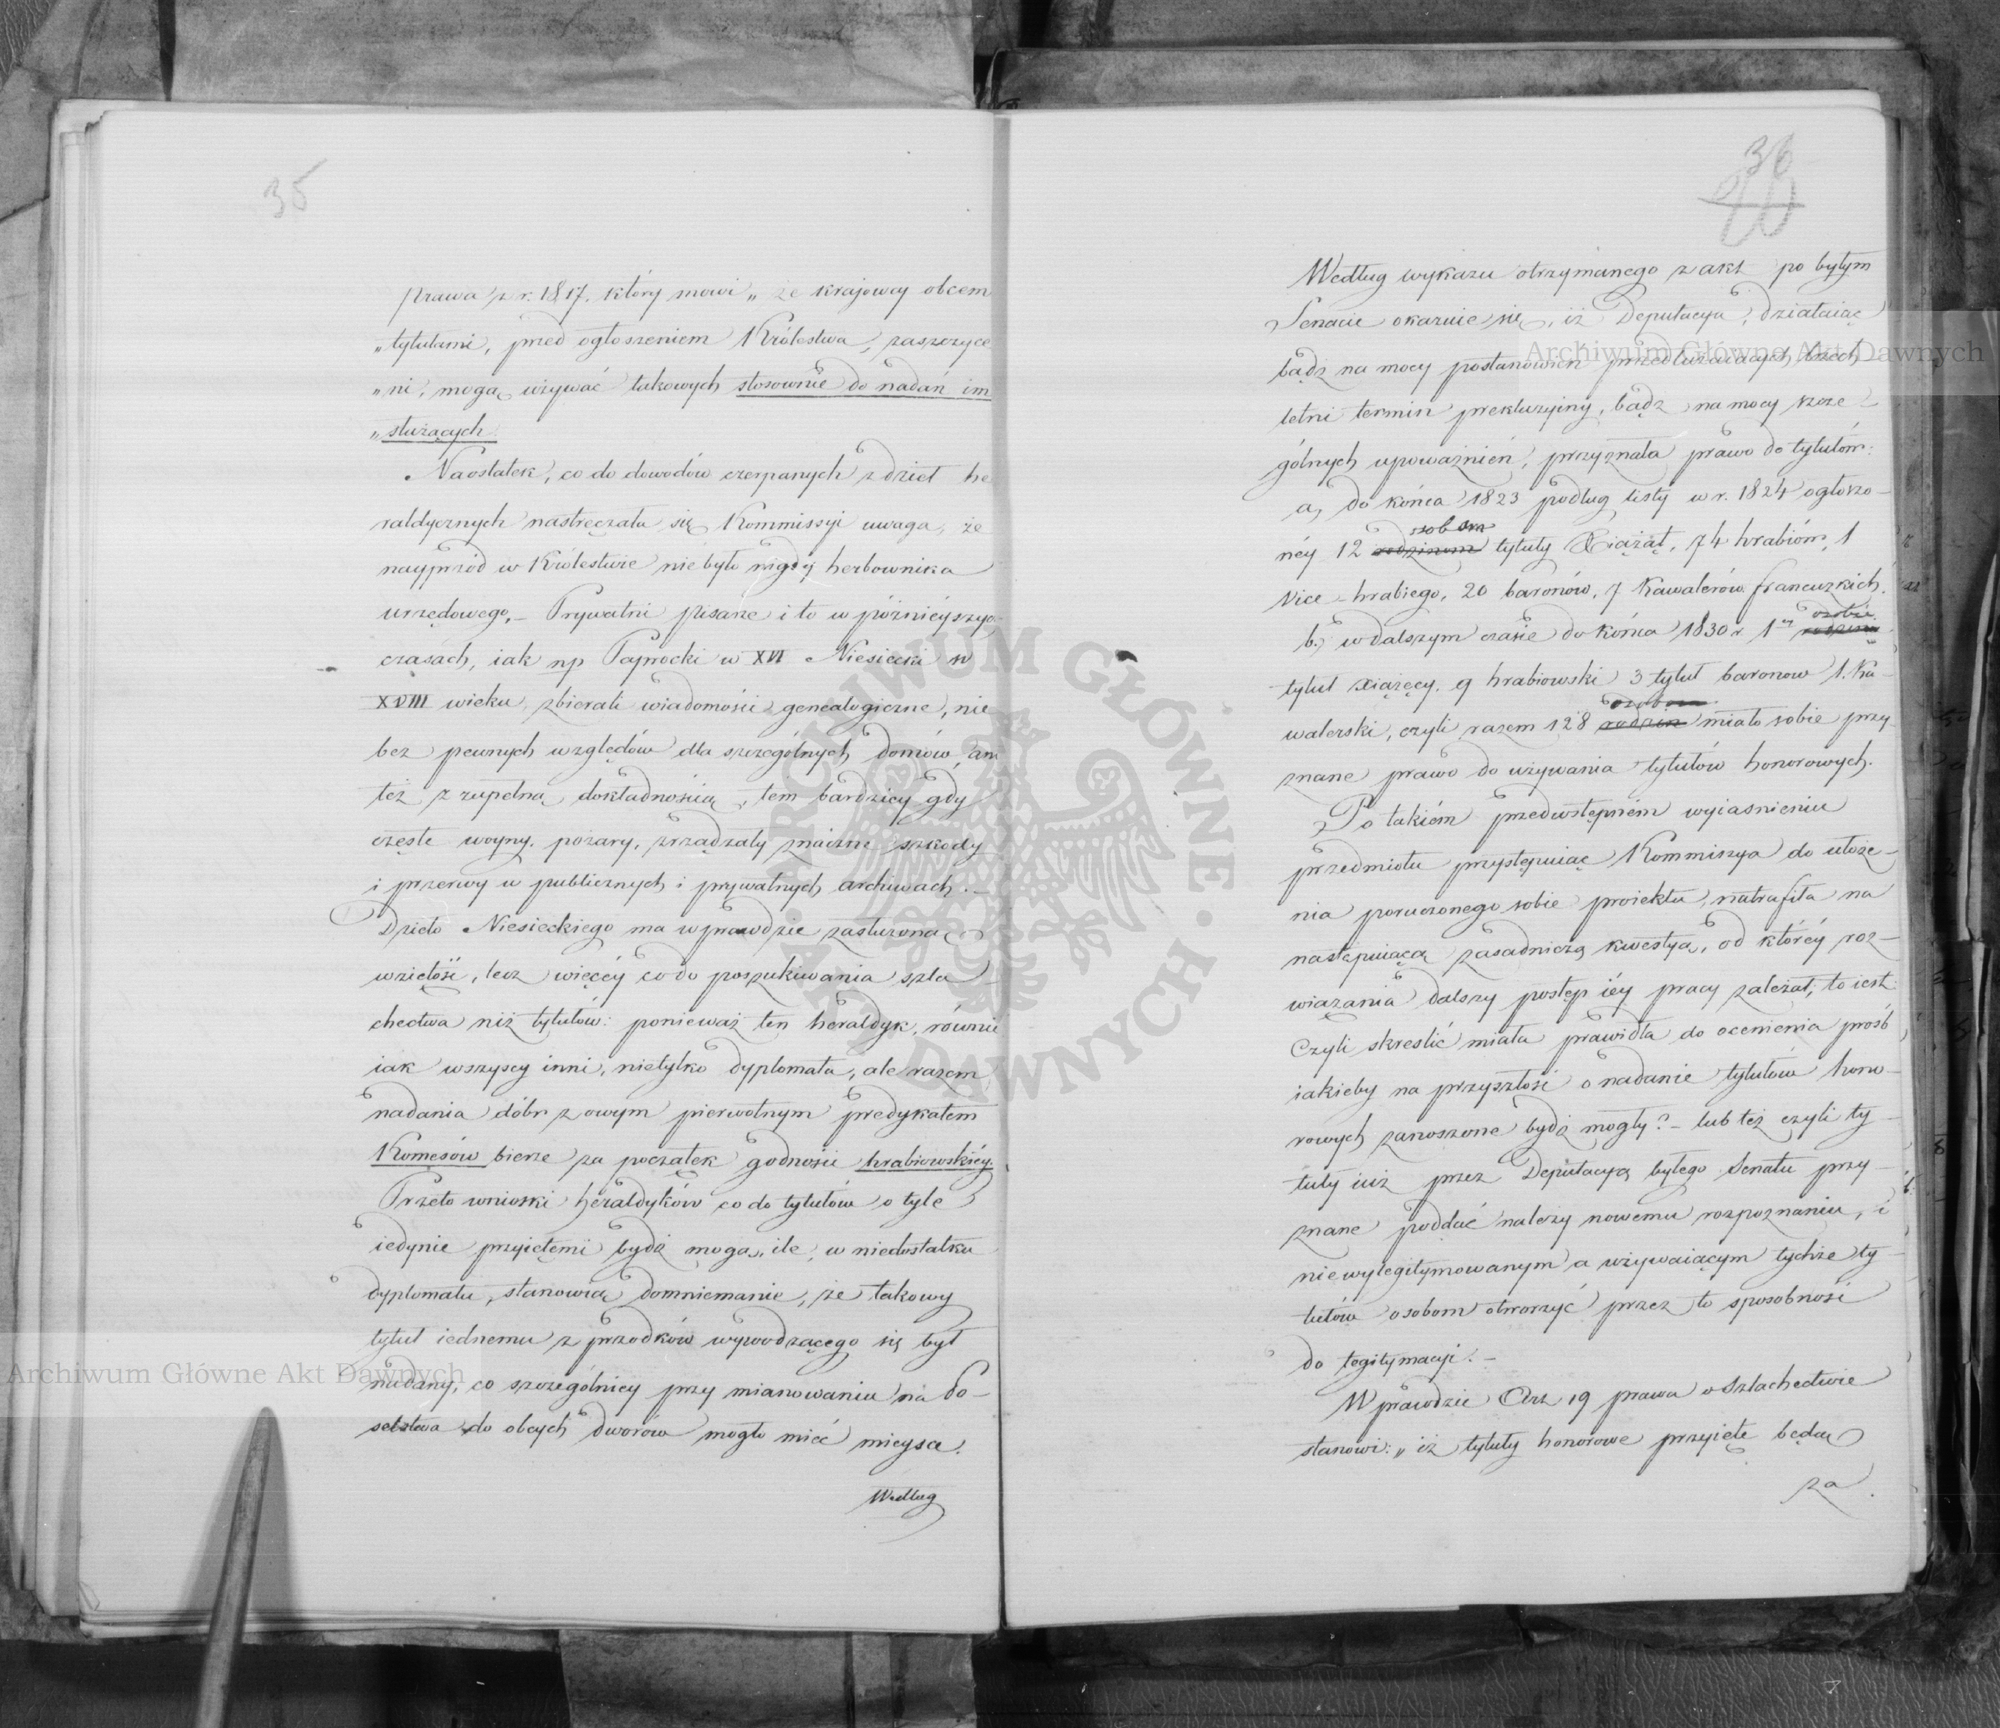 35
prawa z r. 1817, który mowi „ że krajowcy obcem
„tytułami, przed ogłoszeniem Królestwa, zaszczyce
„ni, mogą używać takowych stosownie do nadań im
„służących.
Naostatek, co do dowodów czerpanych z dzieł he
raldycznych nastręczała się Kommissyi uwaga, że
nayprzód w Królestwie nie było nigdy herbownika
urzędowego. – Prywatni pisarze i to w późnieyszych
czasach, iak np Paprocki w XVI Niesiecki w
XVIII wieku, zbierali wiadomości genealogiczne, nie
bez pewnych względów dla szczególnych domów, ani
też z zupełną dokładnością, tem bardziey gdy
częste woyny, pożary, zrządzały znaczne szkody
i przerwy w publicznych i prywatnych archiwach. –
Dzieło Niesieckiego ma wprawdzie zasłużoną
wziętość, lecz więcéy co do poszukiwania szla
chectwa niż tytułów: ponieważ ten heraldyk, równie
iak wszyscy inni, nietylko dyplomata, ale razem
nadania dóbr z owym pierwotnym predykatem
Komesów bierze za początek godności hrabiowskiéy.
Przeto wnioski heraldyków co do tytułów o tyle
iedynie przyiętemi bydź mogą, ile, w niedostatku
dyplomatu, stanowią domniemanie, że takowy
tytuł iednemu z przodków wywodzącego się był
nadany, co szczególniey przy mianowaniu na Po–
selstwa do obcych dworów mogło mieć mieysce.
Według
36
Według wykazu otrzymanego z akt po byłym
Senacie okazuie się, iż Deputacya, działaiąc
bądź na mocy postanowień przedłużaiących trzech
letni termin prekluzyiny, bądź na mocy szcze
gólnych upoważnień, przyznała prawo do tytułów:
a, do końca 1823 podług listy w r. 1824 ogłoszo–
osobom
néy 12 rodzinom tytuły Xiążąt, 74 hrabiów, 1
Vice-hrabiego, 20 baronów, 7 Kawalerów francuzkich.
osobie
b, w dalszym czasie do końca 1830 r. 1éy rodzinie
tytuł xiążęcy, 9 hrabiowski 3 tytuł baronow 1. Ka–
osobom
walerski, czyli razem 128 rodzin miało sobie przy
znane prawo do używania tytułów honorowych.
Po takiém przedwstępném wyiasnieniu
przedmiotu przystępuiąc Kommissya do ułoże–
nia poruczonego sobie proiektu, natrafiła na
następuiącą zasadniczą kwestyą, od któréy roz–
wiązania dalszy postęp iéy pracy zależał; to iest:
Czyli skreślić miała prawidła do ocenienia próśb
iakieby na przyszłość o nadanie tytułów hono–
rowych zanoszone bydź mogły? – lub też czyli ty–
tuły iuż przez Deputacyą byłego Senatu przy–
znane poddać należy nowemu rozpoznaniu, i
niewylegitymowanym a używaiącym tychże ty
tułów osobom otworzyć przez to sposobność
do legitymacyi. –
Wprawdzie Art 19 prawa o Szlachectwie
stanowi: „ iż tytuły honorowe przyięte będą
za
Archiwum Główne Akt Dawnych
Archiwum Główne Akt Dawnych
ARCHIWUM GŁÓWNE · AKT DAWNYCH ·